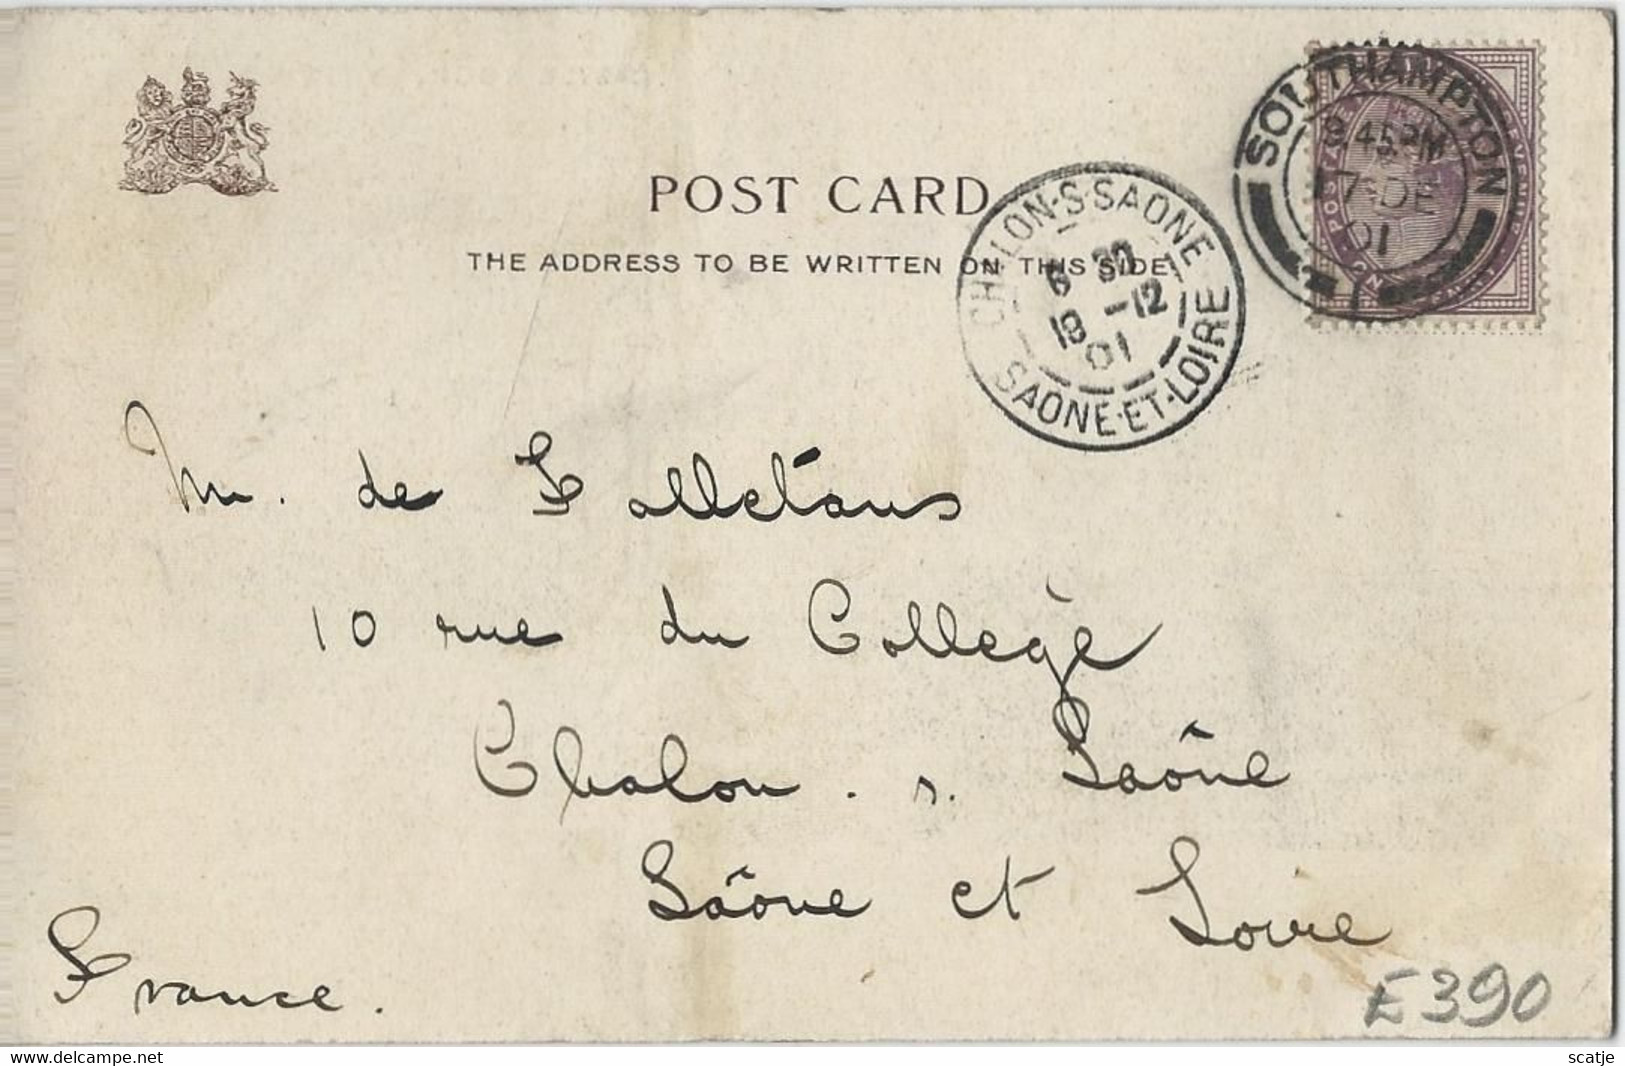 POST CARD
THE ADDRESS TO BE WRITTEN ON THIS SIDE
SOUTHAMPTON
9.45 PM
17 DE
01
1
CHALON-S-SAONE
6 30
19 -12
01
SAONE-ET-LOIRE
M. de Falletans
10 rue du Collège
Chalon. s. Saône
Saône et Loire
France.
E390
delcampe.net
scatje